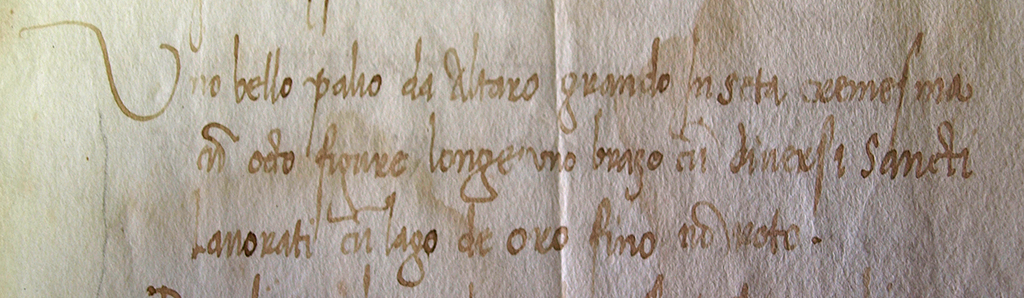 Uno bello palio da Altaro grando in seta cremesina
cũ octo figure longe uno brazo cũ diuersi Sancti
Lauorati cũ lago de oro fino